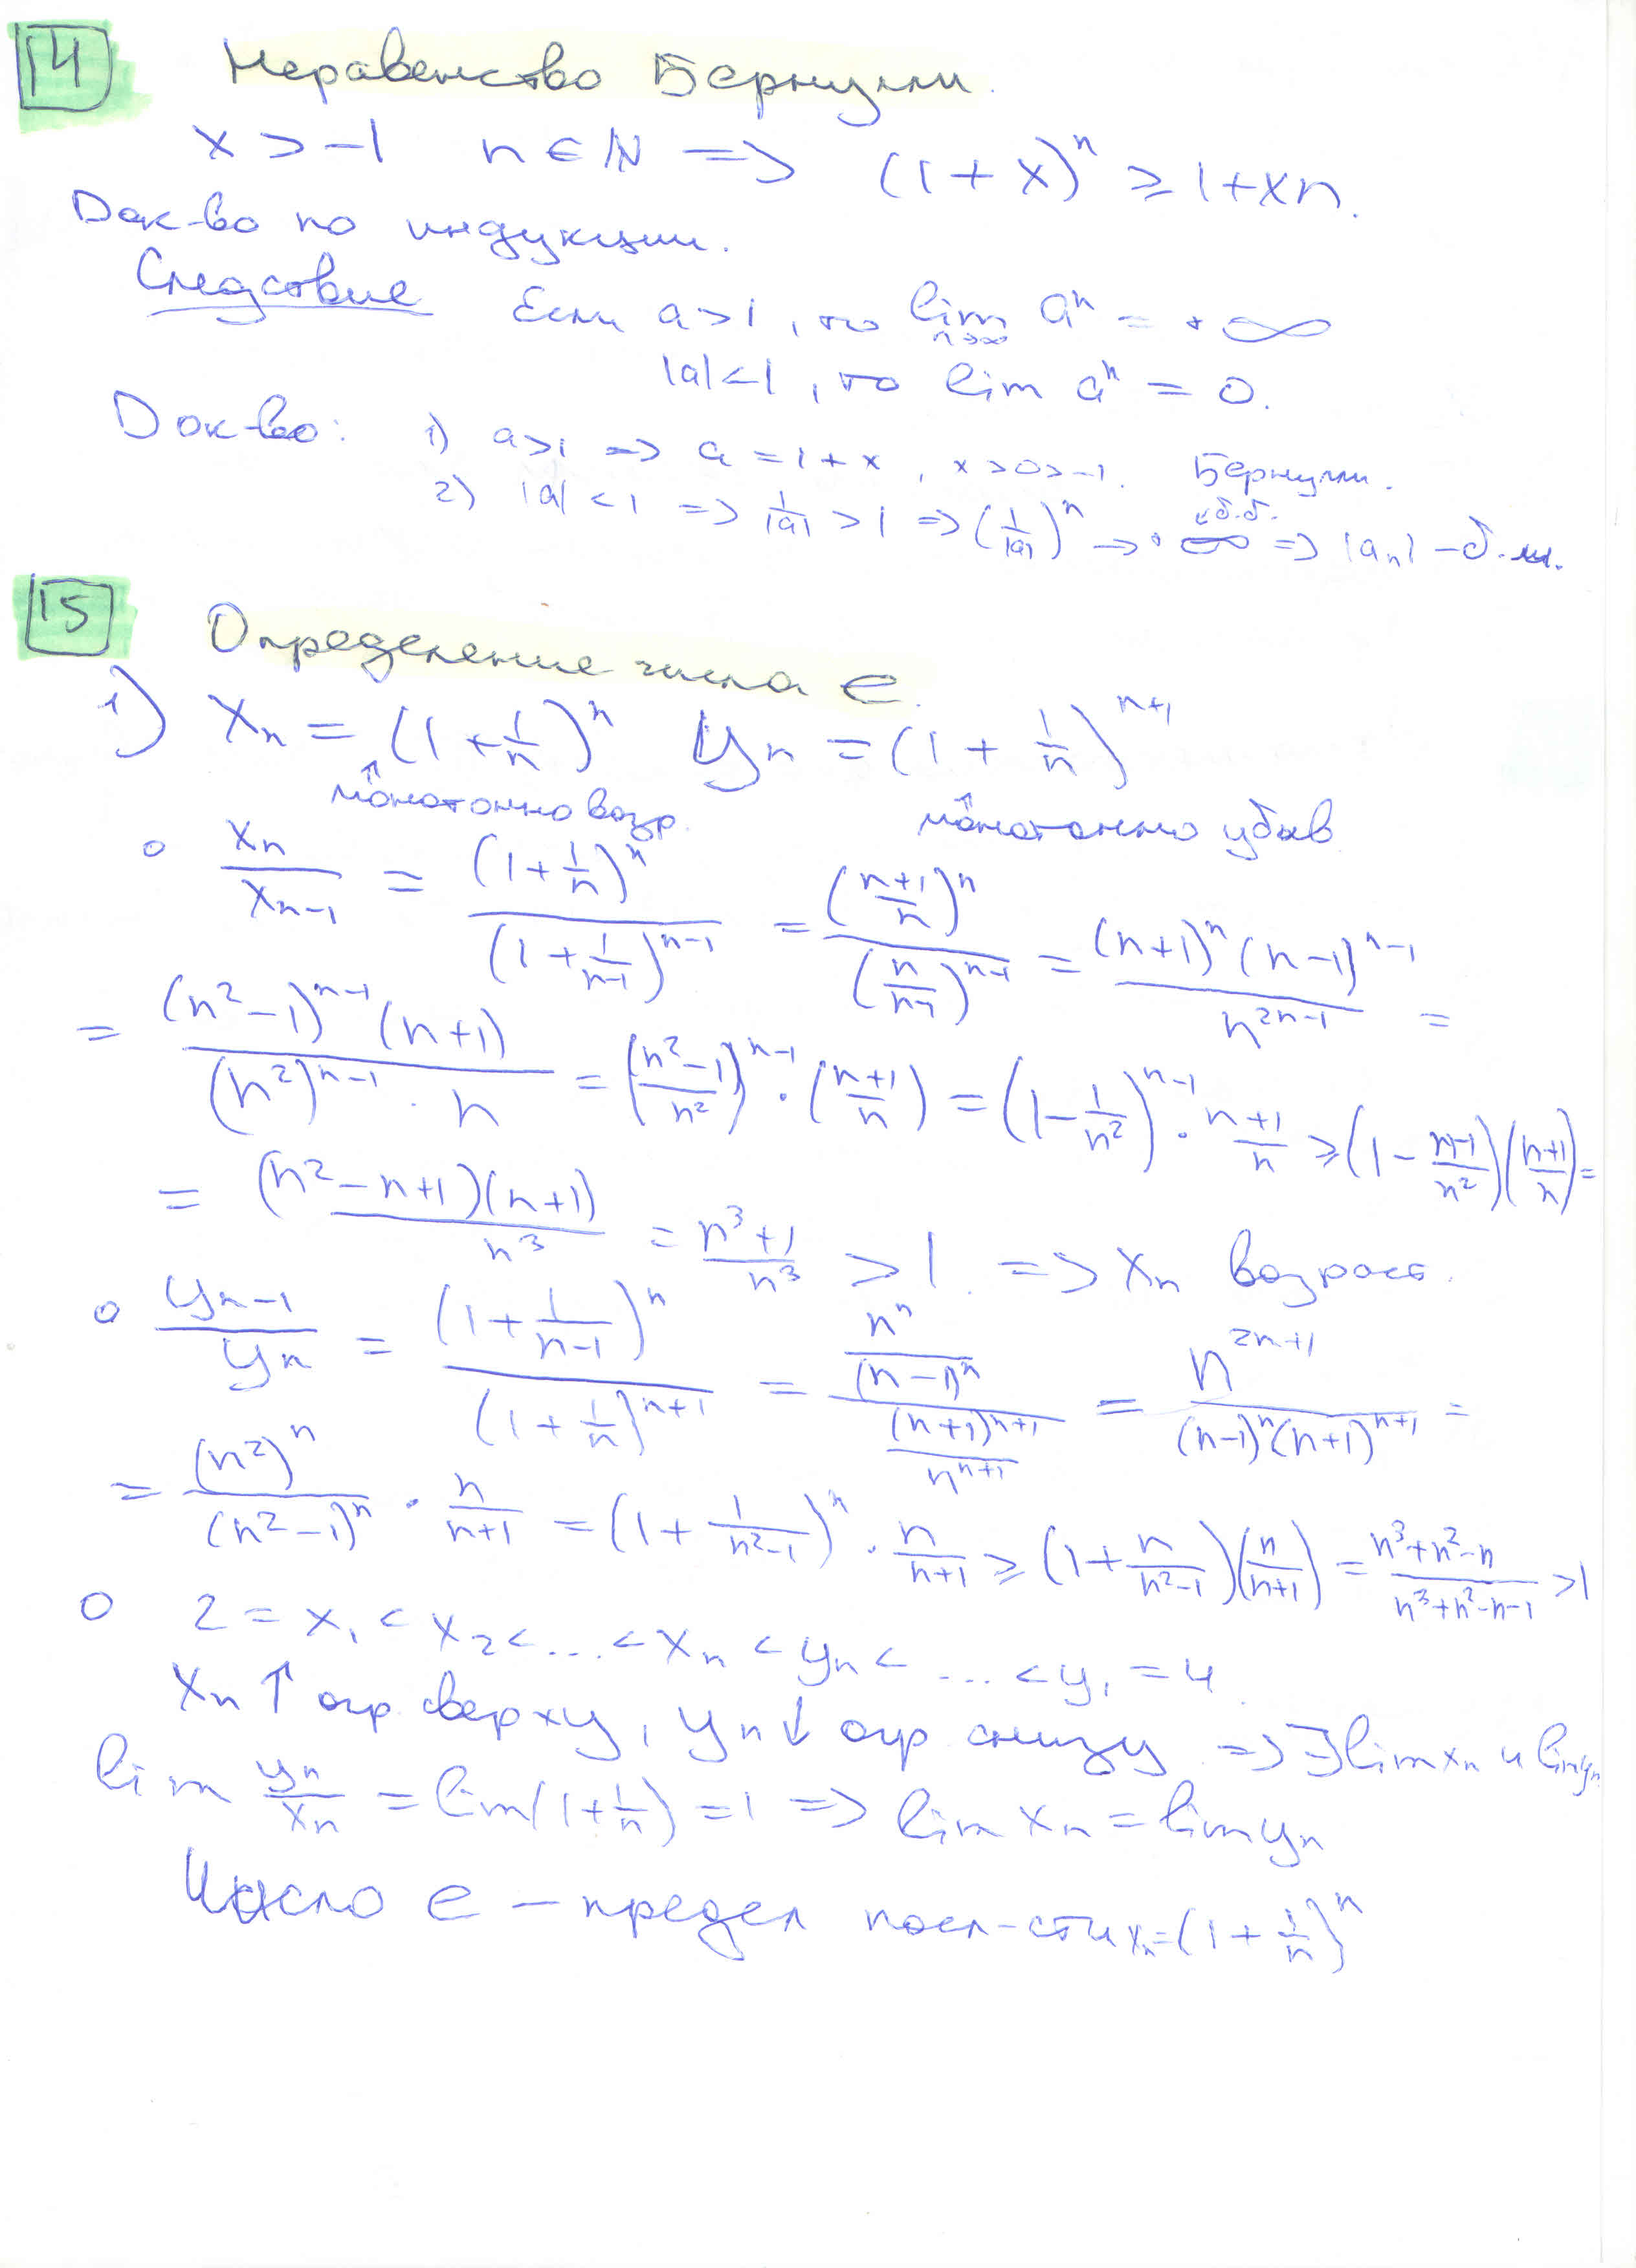 14 Неравенство Бернулли.
x > -1 n ∈ ℕ => (1 + x)^n ≥ 1 + xn.
Док-во по индукции.
Следствие Если a > 1, то lim_{n→∞} a^n = +∞
|a| < 1, то lim a^n = 0.
Док-во: 1) a > 1 => a = 1 + x, x > 0 > -1. Бернулли.
2) |a| < 1 => 1/|a| > 1 => (1/|a|)^n → +∞ ← б.б. => |a_n| - б.м.
15 Определение числа e.
1) x_n = (1 + 1/n)^n y_n = (1 + 1/n)^{n+1}
↑ монотонно возр. ↑ монотонно убыв
∘ x_n/x_{n-1} = (1 + 1/n)^n / (1 + 1/(n-1))^{n-1} = ((n+1)/n)^n / (n/(n-1))^{n-1} = (n+1)^n (n-1)^{n-1} / n^{2n-1} =
= (n²-1)^{n-1} (n+1) / ((n²)^{n-1} · n) = ((n²-1)/n²)^{n-1} · ((n+1)/n) = (1 - 1/n²)^{n-1} · (n+1)/n ≥ (1 - (n-1)/n²)((n+1)/n) =
= (n² - n + 1)(n+1) / n³ = (n³+1)/n³ > 1 => x_n возраст.
∘ y_{n-1}/y_n = (1 + 1/(n-1))^n / (1 + 1/n)^{n+1} = (n^n/(n-1)^n) / ((n+1)^{n+1}/n^{n+1}) = n^{2n+1} / ((n-1)^n (n+1)^{n+1}) =
= (n²)^n / (n²-1)^n · n/(n+1) = (1 + 1/(n²-1))^n · n/(n+1) ≥ (1 + n/(n²-1))(n/(n+1)) = (n³+n²-n)/(n³+n²-n-1) > 1
∘ 2 = x_1 < x_2 < ... < x_n < y_n < ... < y_1 = 4
x_n ↑ огр. сверху, y_n ↓ огр снизу => ∃ lim x_n и lim y_n
lim y_n/x_n = lim(1 + 1/n) = 1 => lim x_n = lim y_n
Число e – предел посл-сти x_n = (1 + 1/n)^n